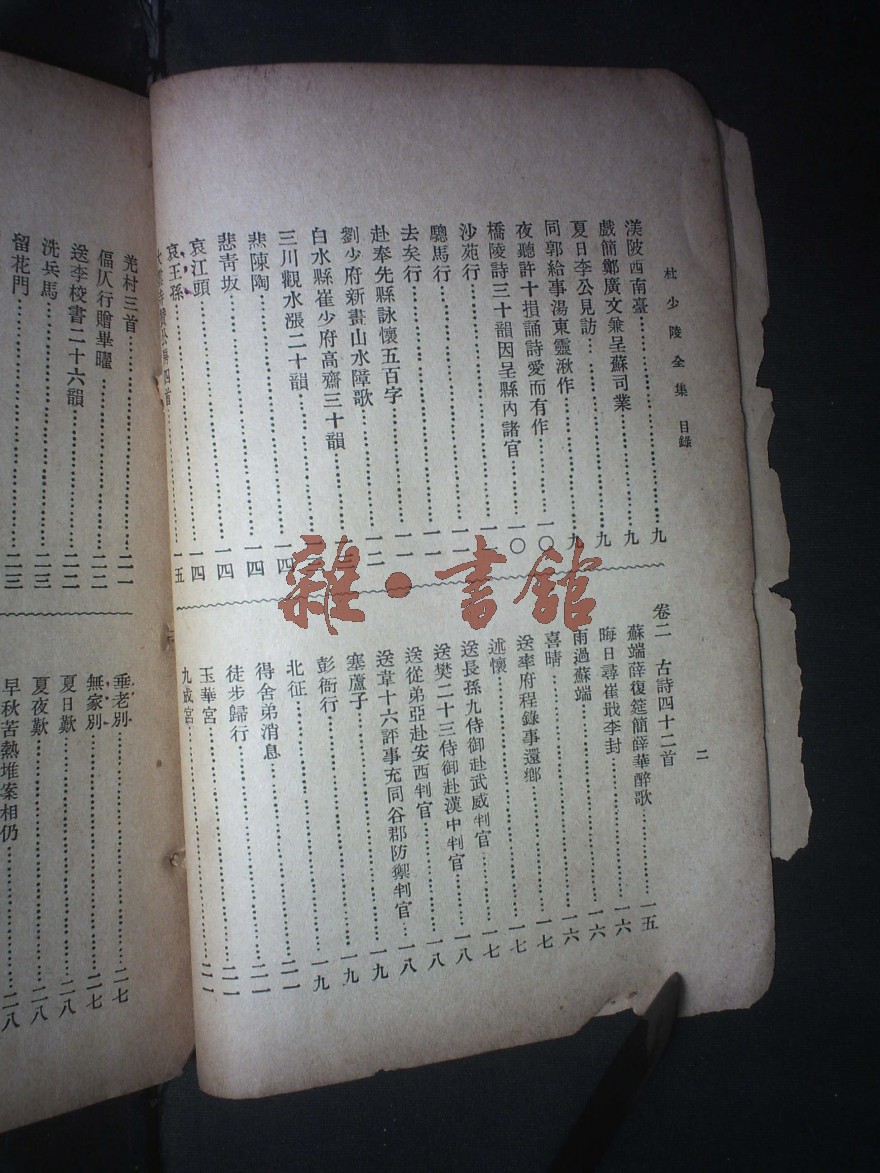 杜少陵全集 目錄
二
渼陂西南臺……九
戲簡鄭廣文兼呈蘇司業……九
夏日李公見訪……九
同郭給事湯東靈湫作……九
夜聽許十損誦詩愛而有作……一〇
橋陵詩三十韻因呈縣內諸官……一〇
沙苑行……一一
驄馬行……一一
去矣行……一一
赴奉先縣詠懷五百字……一一
劉少府新畫山水障歌……一二
白水縣崔少府高齋三十韻
三川觀水漲二十韻
悲陳陶……一四
悲青坂……一四
哀江頭……一四
哀王孫……一五
卷二 古詩四十二首
蘇端薛復筵簡薛華醉歌……一五
晦日尋崔戢李封……一六
雨過蘇端……一六
喜晴……一六
送率府程錄事還鄉……一七
述懷……一七
送長孫九侍御赴武威判官……一七
送樊二十三侍御赴漢中判官……一八
送從弟亞赴安西判官……一八
送韋十六評事充同谷郡防禦判官……一八
塞蘆子……一九
彭衙行……一九
北征……
得舍弟消息……二一
徒步歸行……二一
玉華宮……二一
九成宮……二一
羌村三首……二一
偪仄行贈畢曜……二二
送李校書二十六韻……二二
洗兵馬……二三
留花門……二三
垂老別……二七
無家別……二七
夏日歎……二八
夏夜歎……二八
早秋苦熱堆案相仍……二八
雜·書館